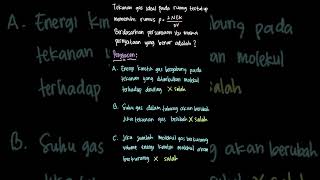 Tekanan gas ideal pada ruang tertutup
memenuhi rumus p = 2NEK
3V
Berdasarkan persamaan itu mana
pernyataan yang benar adalah?
Penjelasan:
A. Energi kinetik gas bergantung pada
tekanan yang ditimbulkan molekul
terhadap dinding X salah
B. Suhu gas dalam tabung akan berubah
jika tekanan gas berubah X salah
C. Jika jumlah molekul gas berkurang
volume energi kinetik molekul akan
berkurang X salah